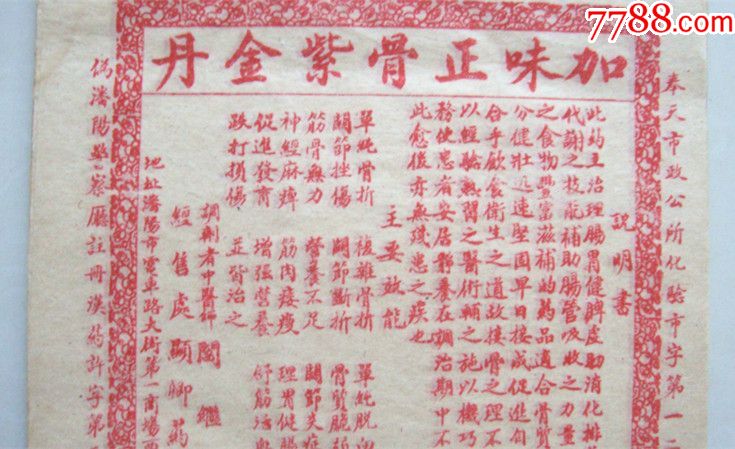 7788.com
加味正骨紫金丹
奉天市政公所化驗市字第一二
說明書
此药主治理腸胃健脾虛助消化排
代謝之技能補助腸管吸收之力量
之食物豐富滋補的药品適合骨質
分健壯迅速堅固早日接成促進自
合乎飲食衛生之道故接骨之理不
以經驗熟習之醫術輔之施以機巧
務使患者安居靜養在調治期中不
此愈後亦無殘患之疾也
主要效能
單純骨折 複雜骨折 單純脫臼
關節挫傷 關節斷折 骨質脆弱
筋骨無力 營養不足 關節炎症
神經麻痺 筋肉痿瘦 理胃健腸
促進發育 增強營養 舒筋活血
跌打損傷 並皆治之
調劑者中醫師 閻繼
經售處 顯卿药
地址瀋陽市電車路大街第一商場西
偽瀋陽警察廳註冊漢药許字第